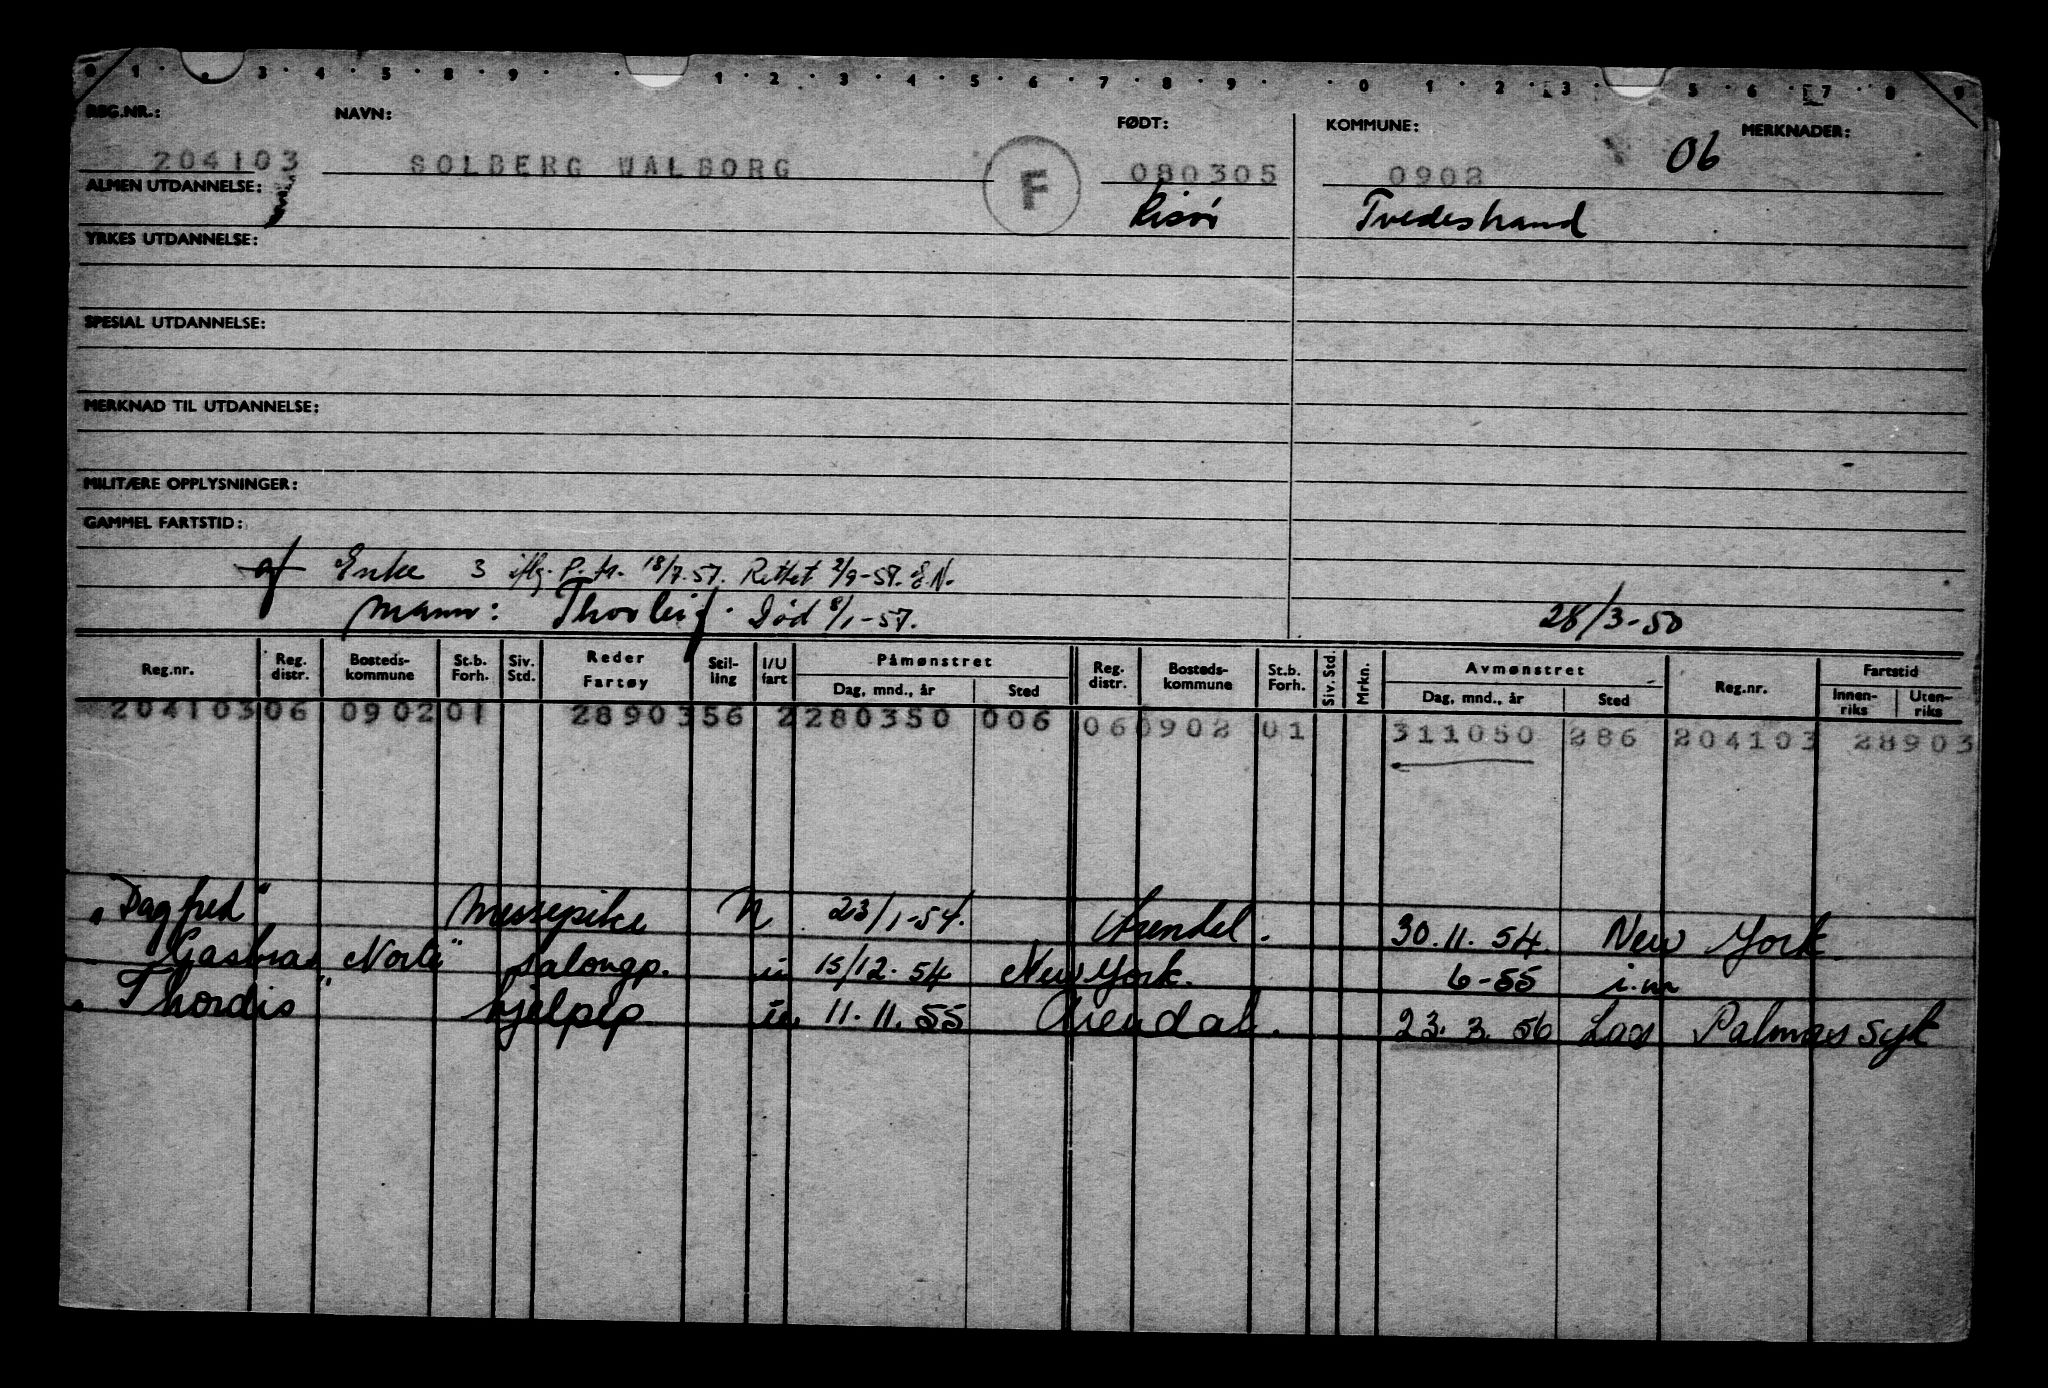 0 1 . . 3 . 4 . 5 . 8 . 9 . 1 . 2 . 3 . 4 . 5 . 6 . 7 . 8 . 9 . . 0 . 1 . 2 . 3 . 5 . 6 . 7 . 8 . 9
REG.NR.: NAVN: FØDT: KOMMUNE: MERKNADER:
204103 SOLBERG WALBORG F 080305 0902 06
ALMEN UTDANNELSE: Risør Tvedestrand
YRKES UTDANNELSE:
SPESIAL UTDANNELSE:
MERKNAD TIL UTDANNELSE:
MILITÆRE OPPLYSNINGER:
GAMMEL FARTSTID:
gf Enke 3 iflg. P. kr. 18/7.57. Rettet 2/9-57. E.N.
Mann: Thorleif. Død 8/1-57. 28/3-50
Reg.nr. Reg. distr. Bosteds-kommune St.b. Forh. Siv. Std. Reder Fartøy Stil-ling I/U fart Påmønstret Dag, mnd., år Sted Reg. distr. Bosteds-kommune St.b. Forh. Siv. Std. Mrkn. Avmønstret Dag, mnd., år Sted Reg.nr. Fartstid Innen-riks Uten-riks
204103 06 0902 01 28903 56 2 280350 006 06 0902 01 311050 286 204103 28903
"Dagfred" Messepike U 23/1-54. Arendal. 30.11.54. New York
Gasbras Norte" salongp. u 15/12.54 New York. 6-55
"Thordis" hjelpep u. 11.11.55 Arendal. 23.3.56 Las Palmas syk